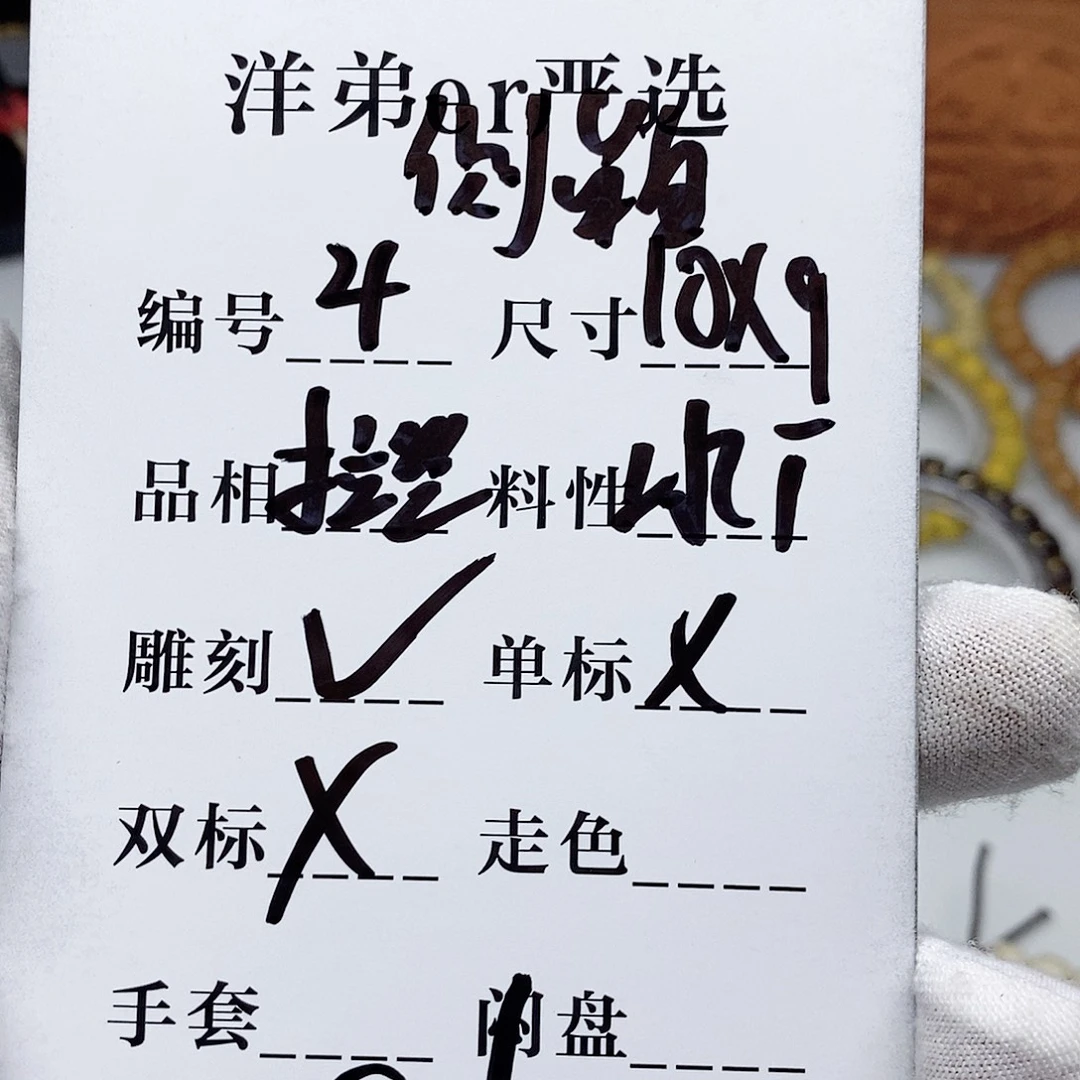 洋弟er严选
编号 4 尺寸 10x9
品相 控 料性
雕刻 √ 单标 X
双标 X 走色
手套 闲盘